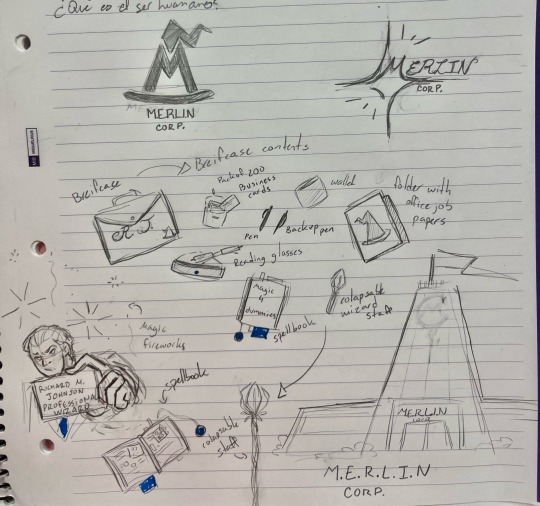 ¿Que es el ser humano?
MERLIN
CORP.
MERLIN
CORP.
Breifcase contents
Breifcase
Pack of 200
Business
cards
wallet
folder with
office job
papers
R.J.
Pen
Backup pen
Reading glasses
Magic
4
dummies
spellbook
colapsable
wizard
staff
Magic
fireworks
RICHARD M.
JOHNSON
PROFESSIONAL
WIZARD
spellbook
colapsable
staff
MERLIN
M.E.R.L.I.N
CORP.